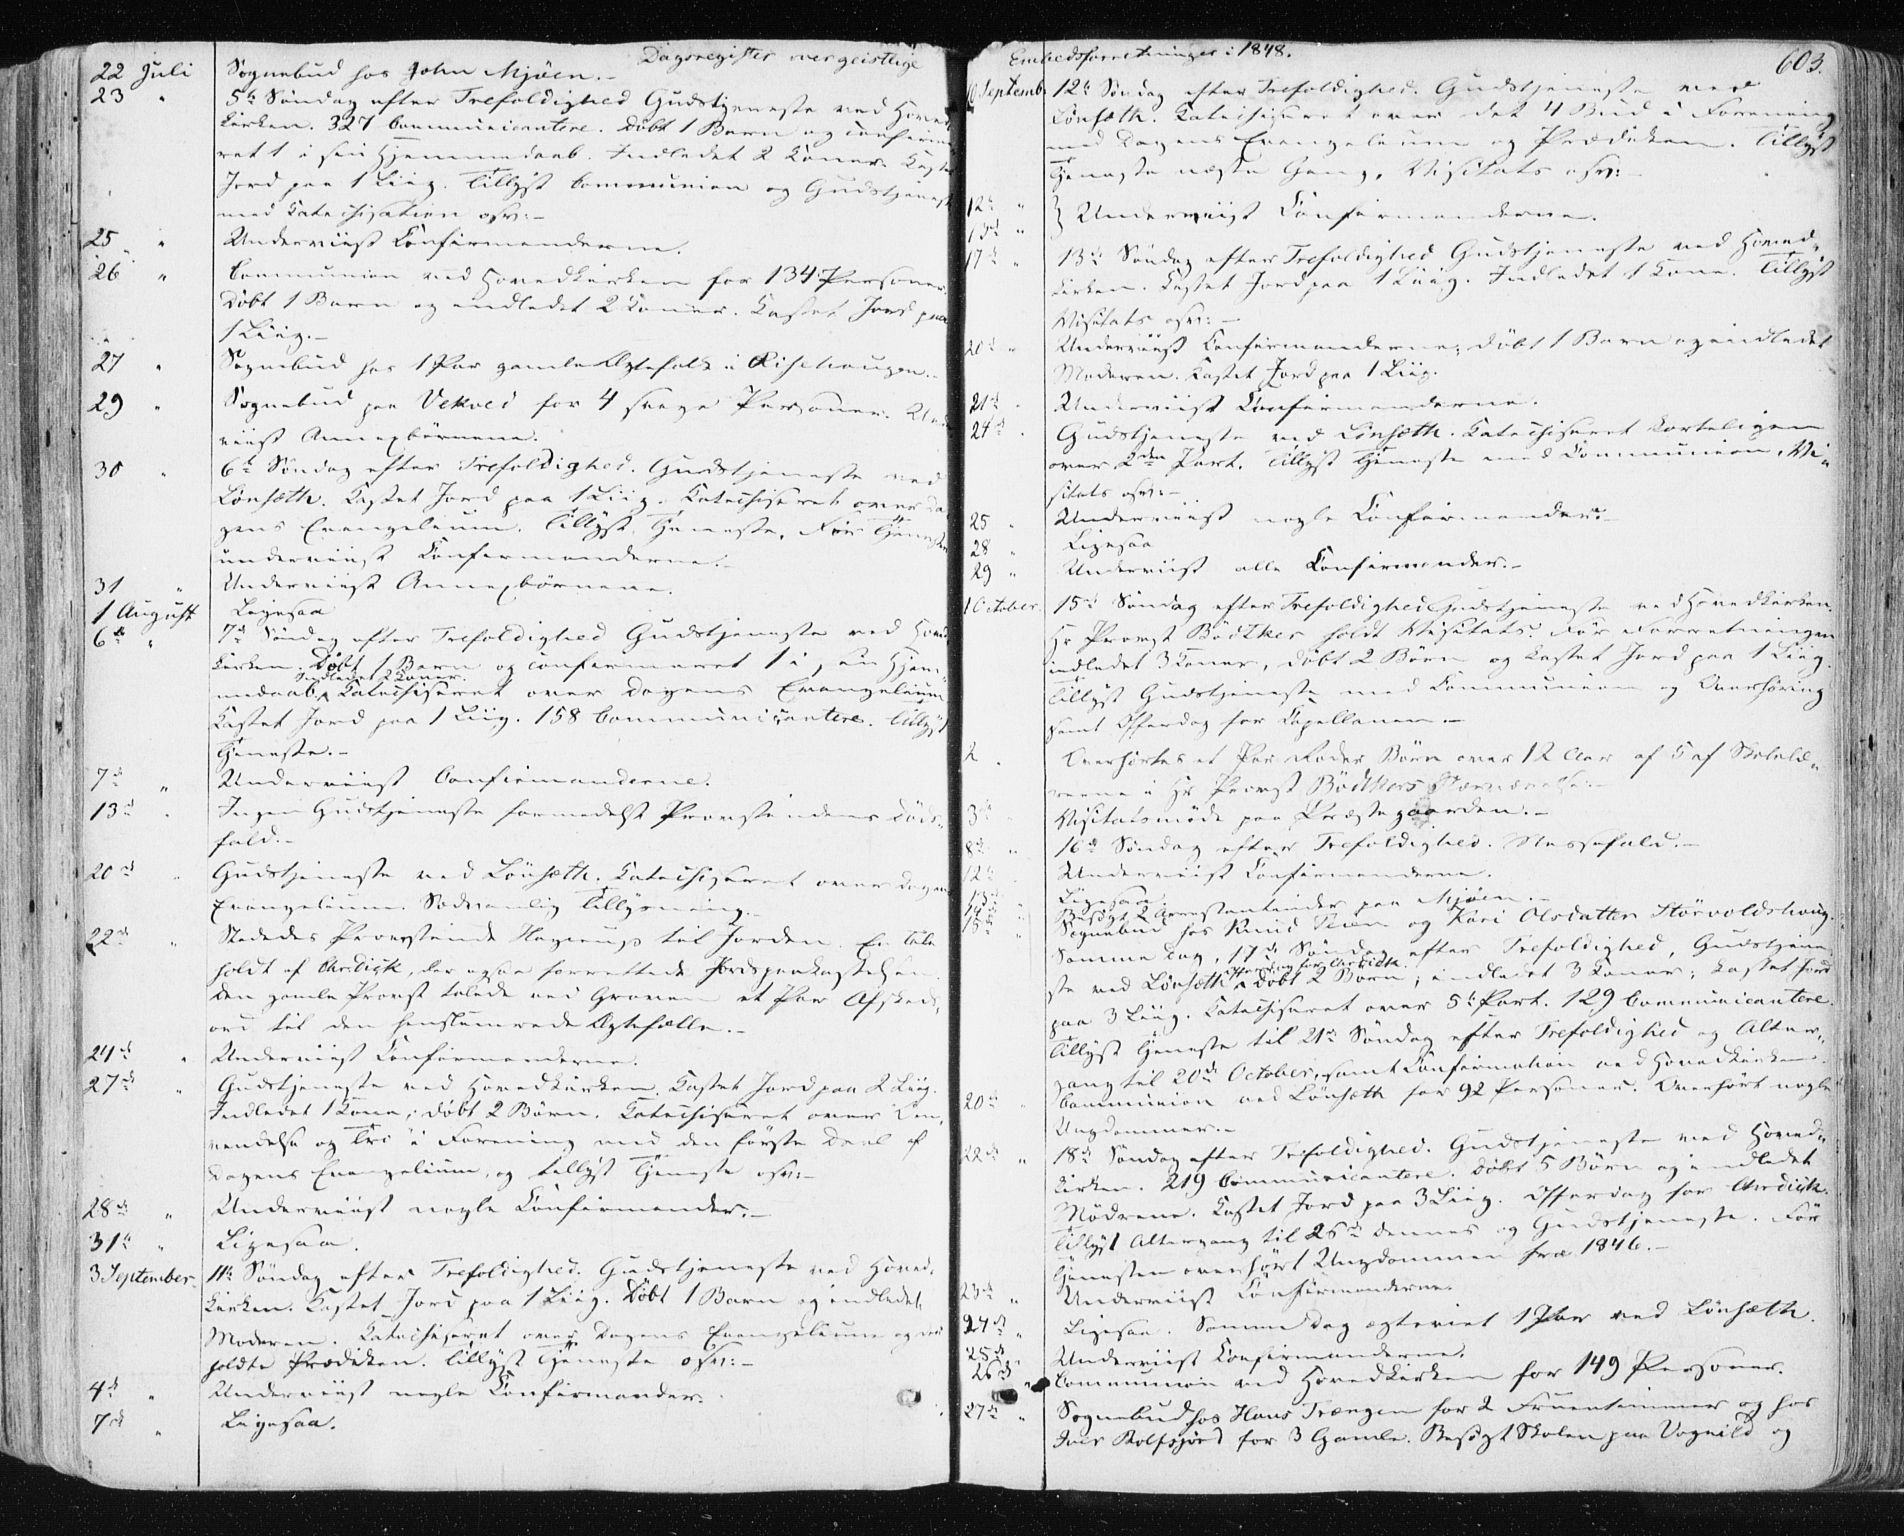 Dagsregister over geistlige
22 Juli Sognebud hos John Mjöen.-
23 " 5te Söndag efter Trefoldighed Gudstjeneste ved Hoved
kirken. 327 Communicantere. Döbt 1 Barn og confirme
ret 1 i sin Hjemmedaab. Indledet 2 Koner. Kastet
Jord paa 1 Liig. Tillyst Communion og Gudstjeneste
med Katechisation osv:-
25 " Underviist Confirmanderne.
26 " Communion ved Hovedkirken for 134 Personer.
Döbt 1 Barn og indledet 2 Koner. Kastet Jord paa
1 Liig.-
27 " Sognebud hos 1 Par gamle Ægtefolk i Risehaugen.-
29 " Sognebud paa Vekved for 4 svage Personer. Under
viist Annexbörnene.
30 " 6te Söndag efter Trefoldighed. Gudstjeneste ved
Lönseth. Kastet Jord paa 1 Liig. Katechiseret over Da
gens Evangelium. Tillyst Tjeneste. För Tjenesten
underviist Confirmanderne.-
31 " Underviist Annexbörnene.
1 August Ligesaa
6te " 7de Söndag efter Trefoldighed Gudstjeneste ved Hoved
kirken. Döbt 1 Barn og confirmeret 1 i sin Hjem-
Indledet 2 Koner.
medaab. Katechiseret over Dagens Evangelium
Kastet Jord paa 1 Liig. 158 Communicantere. Tillyst
Tjeneste.-
7de " Underviist Confirmanderne.
13de " Ingen Gudstjeneste formedelst Provstindens Döds-
fald.-
20de " Gudstjeneste ved Lönseth. Katechiseret over Dagens
Evangelium. Sædvanlig Tillysning.-
22de " Stededes Provstinde til Jorden. En Tale
holdt af Ardisk, der ogsaa forrettede Jordspaakastelsen.
Den gamle Provst talede ved Graven et Par Afskeds
ord til den henslumrede Ægtefælle.-
24de " Underviist Confirmanderne.
27de " Gudstjeneste ved Hovedkirken. Kastet Jord paa 2 Liig.
Indledet 1 Kone, döbt 2 Börn. Katechiseret over Om-
vendelse og Tro i Forening med den förste Deel af
Dagens Evangelium, og tillyst Tjeneste osv:-
28de " Underviist nogle Confirmander.-
31te " Ligesaa.
3 September. 11te Söndag efter Trefoldighed. Gudstjeneste ved Hoved-
kirken. Kastet Jord paa 1 Liig. Döbt 1 Barn og indledet
Moderen. Katechiseret over Dagens Evangelium og den
holdte Prædiken. Tillyst Tjeneste osv:-
4de " Underviist nogle Confirmander.
7de " Ligesaa.
Embedsforretninger i 1848. 603.
10 Septemb. 12te Söndag efter Trefoldighed. Gudstjeneste ved
Lönseth. Katechiseret over det 4 Bud i Forening
med Dagens Evangelium og Prædiken. Tillyst
Tjeneste næste Gang, Visitats osv:-
12te "
13de " } Underviist Confirmanderne.
17de " 13de Söndag efter Trefoldighed Gudstjeneste ved Hoved-
kirken. Kastet Jord paa 1 Liig. Indledet 1 Kone. Tillyst
Visitats osv:-
20de " Underviist Confirmanderne; döbt 1 Barn og indledet
Moderen. Kastet Jord paa 1 Liig.
21de " Underviist Confirmanderne.
24de " Gudstjeneste ved Lönseth. Katechiseret korteligen
over 2den Part. Tillyst Tjeneste med Communion, Vi-
sitats osv:-
25 " Underviist nogle Confirmander.-
28 " Ligesaa
29 " Underviist alle Confirmander.-
1 October. 15de Söndag efter Trefoldighed Gudstjeneste ved Hovedkirken.
Hr Provst Bödtker holdt Visitats. För Forretningen
indledet 3 Koner, döbt 2 Börn og kastet Jord paa 1 Liig.
Tillyst Gudstjeneste med Communion og Overhöring
samt Offerdag for Capellanen.-
2 " Overhörtes et Par Roder Börn over 12 Aar af 5 af Skolelæ-
rerne i Hr Provst Bödtkers Nærværelse.-
3de " Visitatsmöde paa Præstegaarden.-
8de " 16de Söndag efter Trefoldighed. Messefald.-
12te " Underviist Confirmanderne.
13de " Ligesaa.
14de " Besögt 2 paa Mjöen.-
15de " Sognebud hos Knud og Kari Olsdatter Störvoldshaug.
Samme Dag, 17de Söndag efter Trefoldighed, Gudstjene
Offerdag for Ardisk.
ste ved Lönseth. Döbt 2 Börn, indledet 3 Koner; kastet Jord
paa 3 Liig. Katechiseret over 5te Part. 129 Communicantere.
Tillyst Tjeneste til 21de Söndag efter Trefoldighed og Alter-
gang til 20de October, samt Confirmation ved Hovedkirken.
20de " Communion ved Lönseth for 92 Personer. Overhört nogle
Ungdommer.-
22de " 18de Söndag efter Trefoldighed. Gudstjeneste ved Hoved-
kirken. 219 Communicantere. Döbt 5 Börn og indledet
Mödrene. Kastet Jord paa 3 Liig. Offerdag for Ardisk.
Tillyst Altergang til 26de dennes og Gudstjeneste. För
Tjenesten overhört Ungdommen fra 1846.-
23de " Underviist Confirmanderne.
24de " Ligesaa. Samme Dag ægteviet 1 Par ved Lönseth.
25de " Underviist Confirmanderne.
26de " Communion ved Hovedkirken for 149 Personer.
27de " Sognebud hos Hans Trængen for 2 Fruentimmer og hos
Iver Rolfsjord for 3 Gamle. Besögt Skolen paa Vognild og